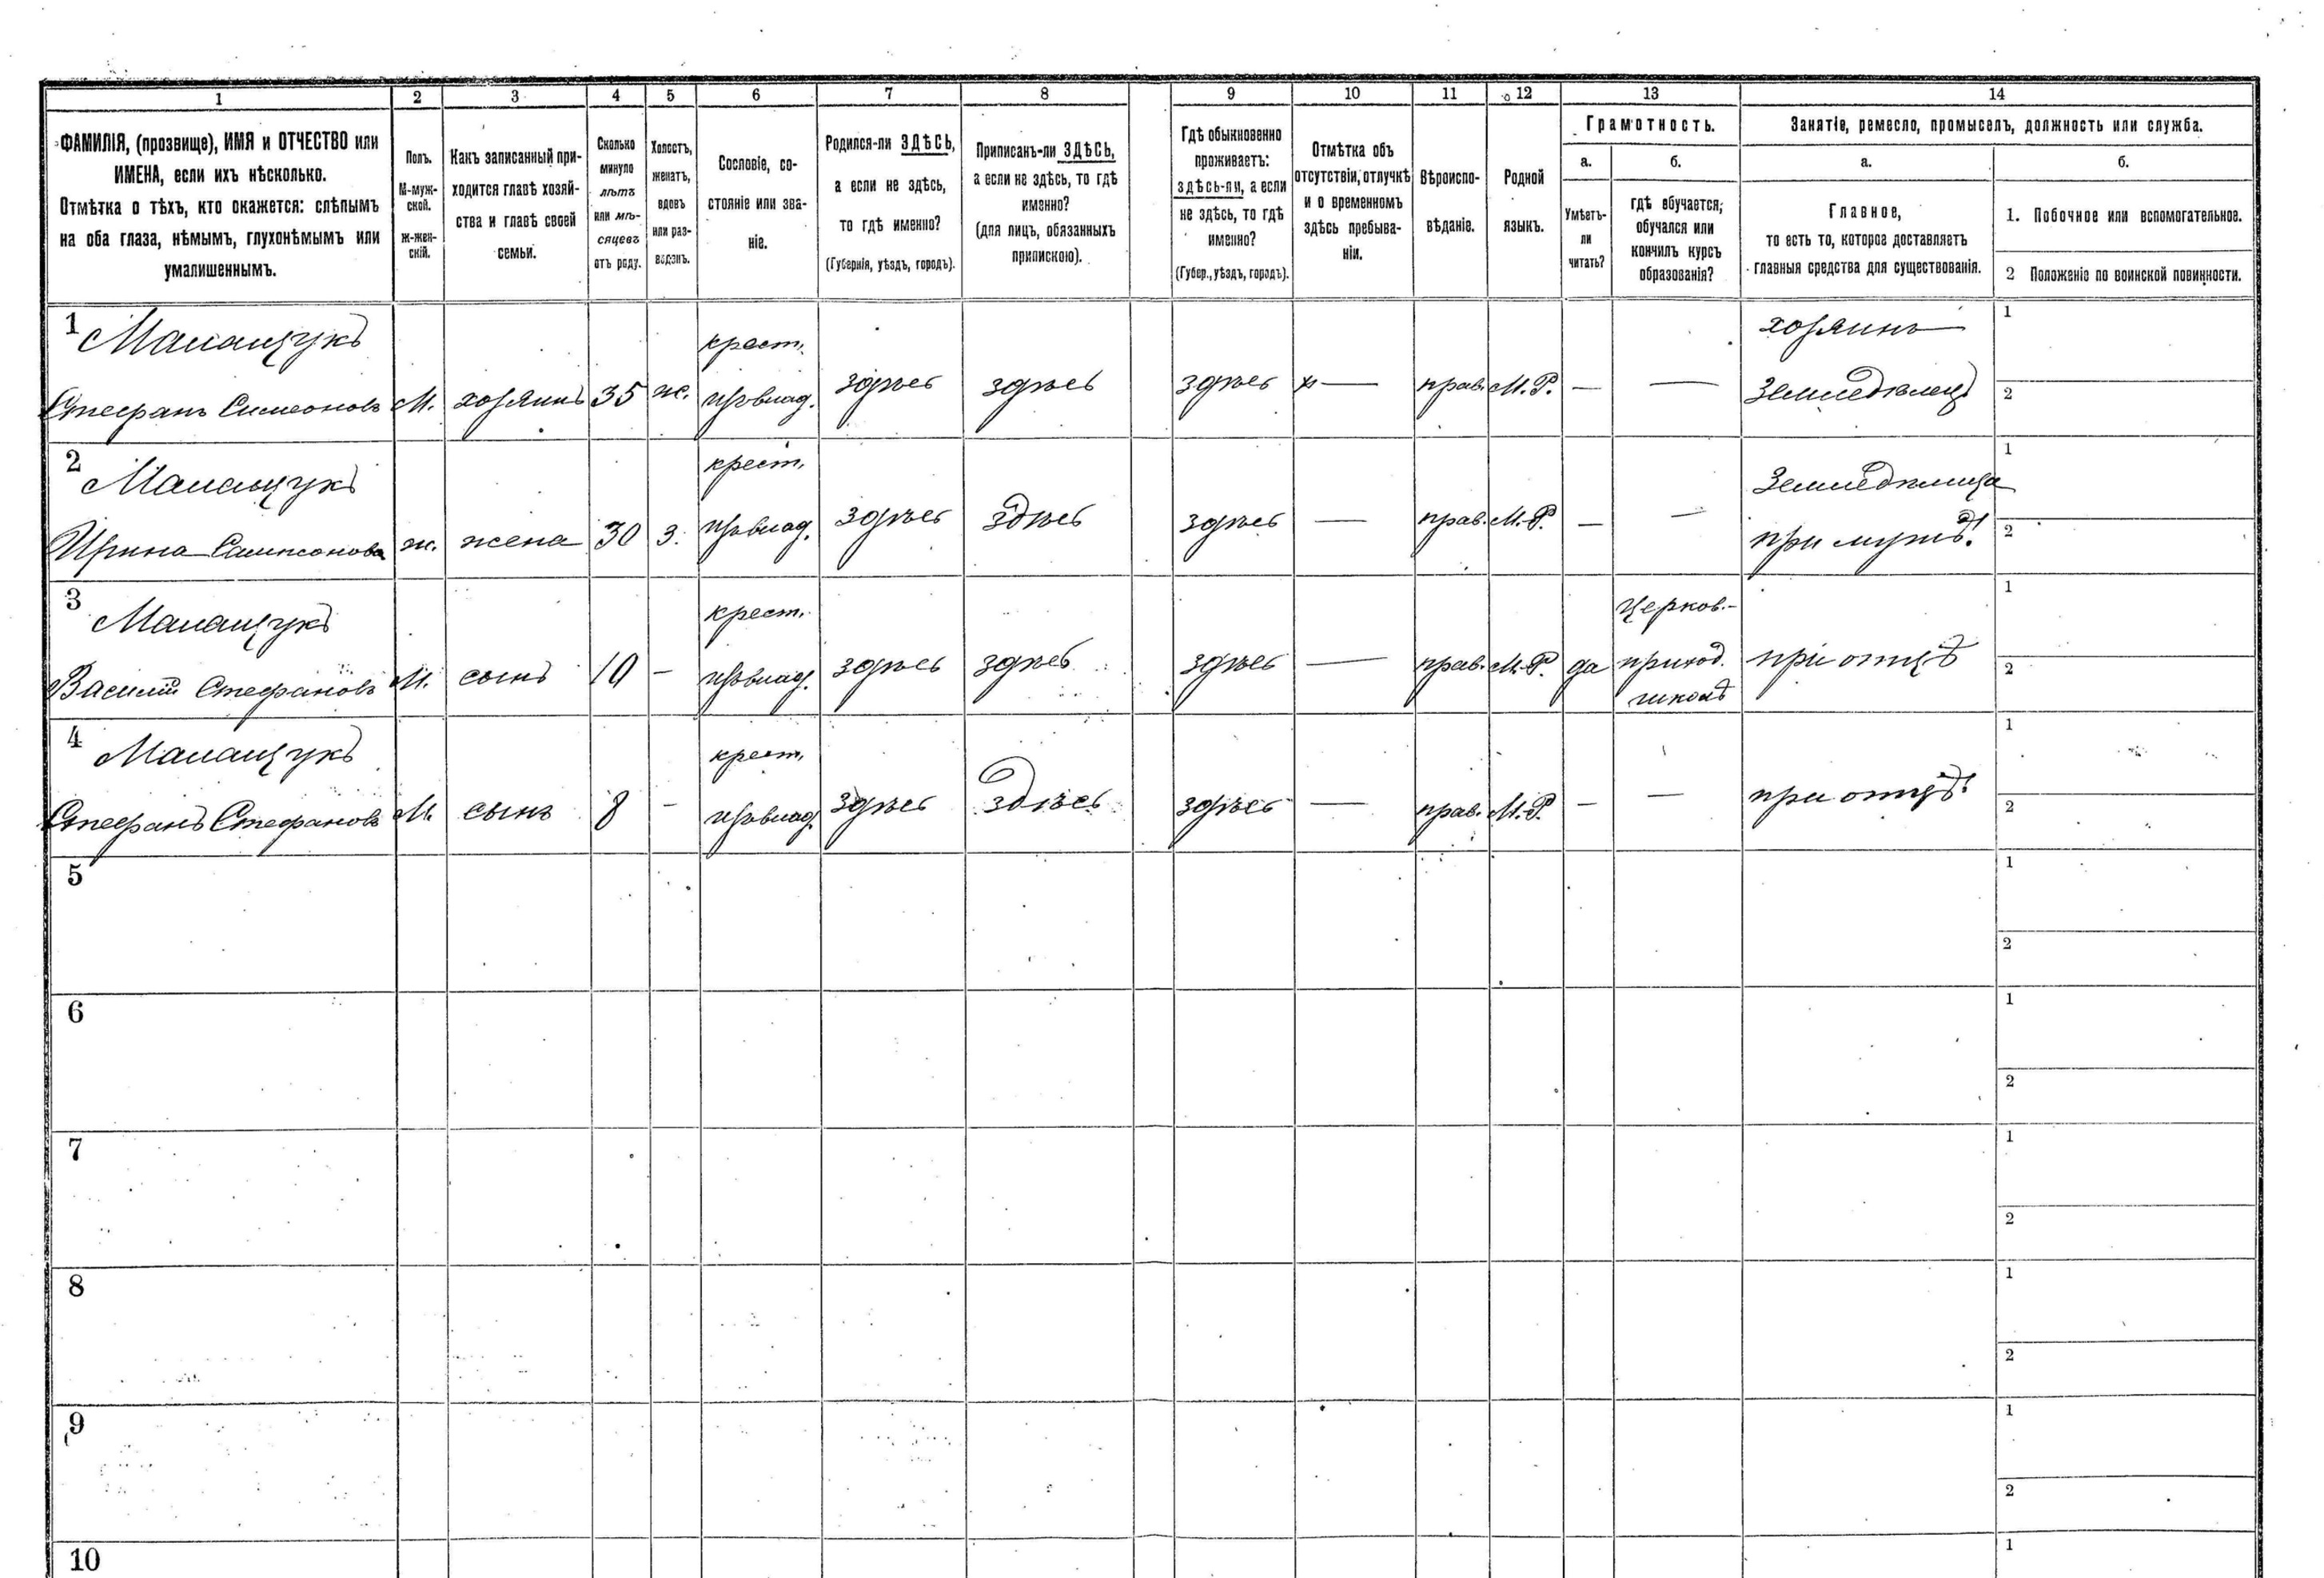 1 2 3 4 5 6 7 8 9 10 11 12 13 14
ФАМИЛІЯ, (прозвище), ИМЯ и ОТЧЕСТВО или
ИМЕНА, если ихъ нѣсколько.
Отмѣтка о тѣхъ, кто окажется: слѣпымъ
на оба глаза, нѣмымъ, глухонѣмымъ или
умалишеннымъ.
Полъ.
М-муж-
ской.
ж-жен-
скій.
Какъ записанный при-
ходится главѣ хозяй-
ства и главѣ своей
семьи.
Сколько
минуло
лѣтъ
или мѣ-
сяцевъ
отъ роду.
Холостъ,
женатъ,
вдовъ
или раз-
веденъ.
Сословіе, со-
стояніе или зва-
ніе.
Родился-ли ЗДѢСЬ,
а если не здѣсь,
то гдѣ именно?
(Губернія, уѣздъ, городъ).
Приписанъ-ли ЗДѢСЬ,
а если не здѣсь, то гдѣ
именно?
(для лицъ, обязанныхъ
припискою).
Гдѣ обыкновенно
проживаетъ:
здѣсь-ли, а если
не здѣсь, то гдѣ
именно?
(Губер., уѣздъ, городъ).
Отмѣтка объ
отсутствіи, отлучкѣ
и о временномъ
здѣсь пребыва-
ніи.
Вѣроиспо-
вѣданіе.
Родной
языкъ.
Грамотность.
а.
Умѣетъ-
ли
читать?
б.
гдѣ обучается,
обучался или
кончилъ курсъ
образованія?
Занятіе, ремесло, промыселъ, должность или служба.
а.
Главное,
то есть то, которое доставляетъ
главныя средства для существованія.
б.
1. Побочное или вспомогательное.
2 Положеніе по воинской повинности.
1 Маланчукъ крест. хозяинъ 1
Стефанъ Симеоновъ М. хозяинъ 35 ж. здѣсь здѣсь здѣсь — прав. М.Р. — — Земледѣлецъ 2
2 Маланчукъ крест. Земледѣлица 1
Ирина Самсонова ж. жена 30 з. здѣсь здѣсь здѣсь — прав. М.Р. — — при мужѣ. 2
3 Маланчукъ крест. Церков.- 1
Василій Стефановъ М. сынъ 10 — здѣсь здѣсь здѣсь — прав. М.Р. да приход. при отцѣ 2
школѣ
4 Маланчукъ крест. 1
Стефанъ Стефановъ М. сынъ 8 — здѣсь здѣсь здѣсь — прав. М.Р. — — при отцѣ. 2
5 1
2
6 1
2
7 1
2
8 1
2
9 1
2
10 1